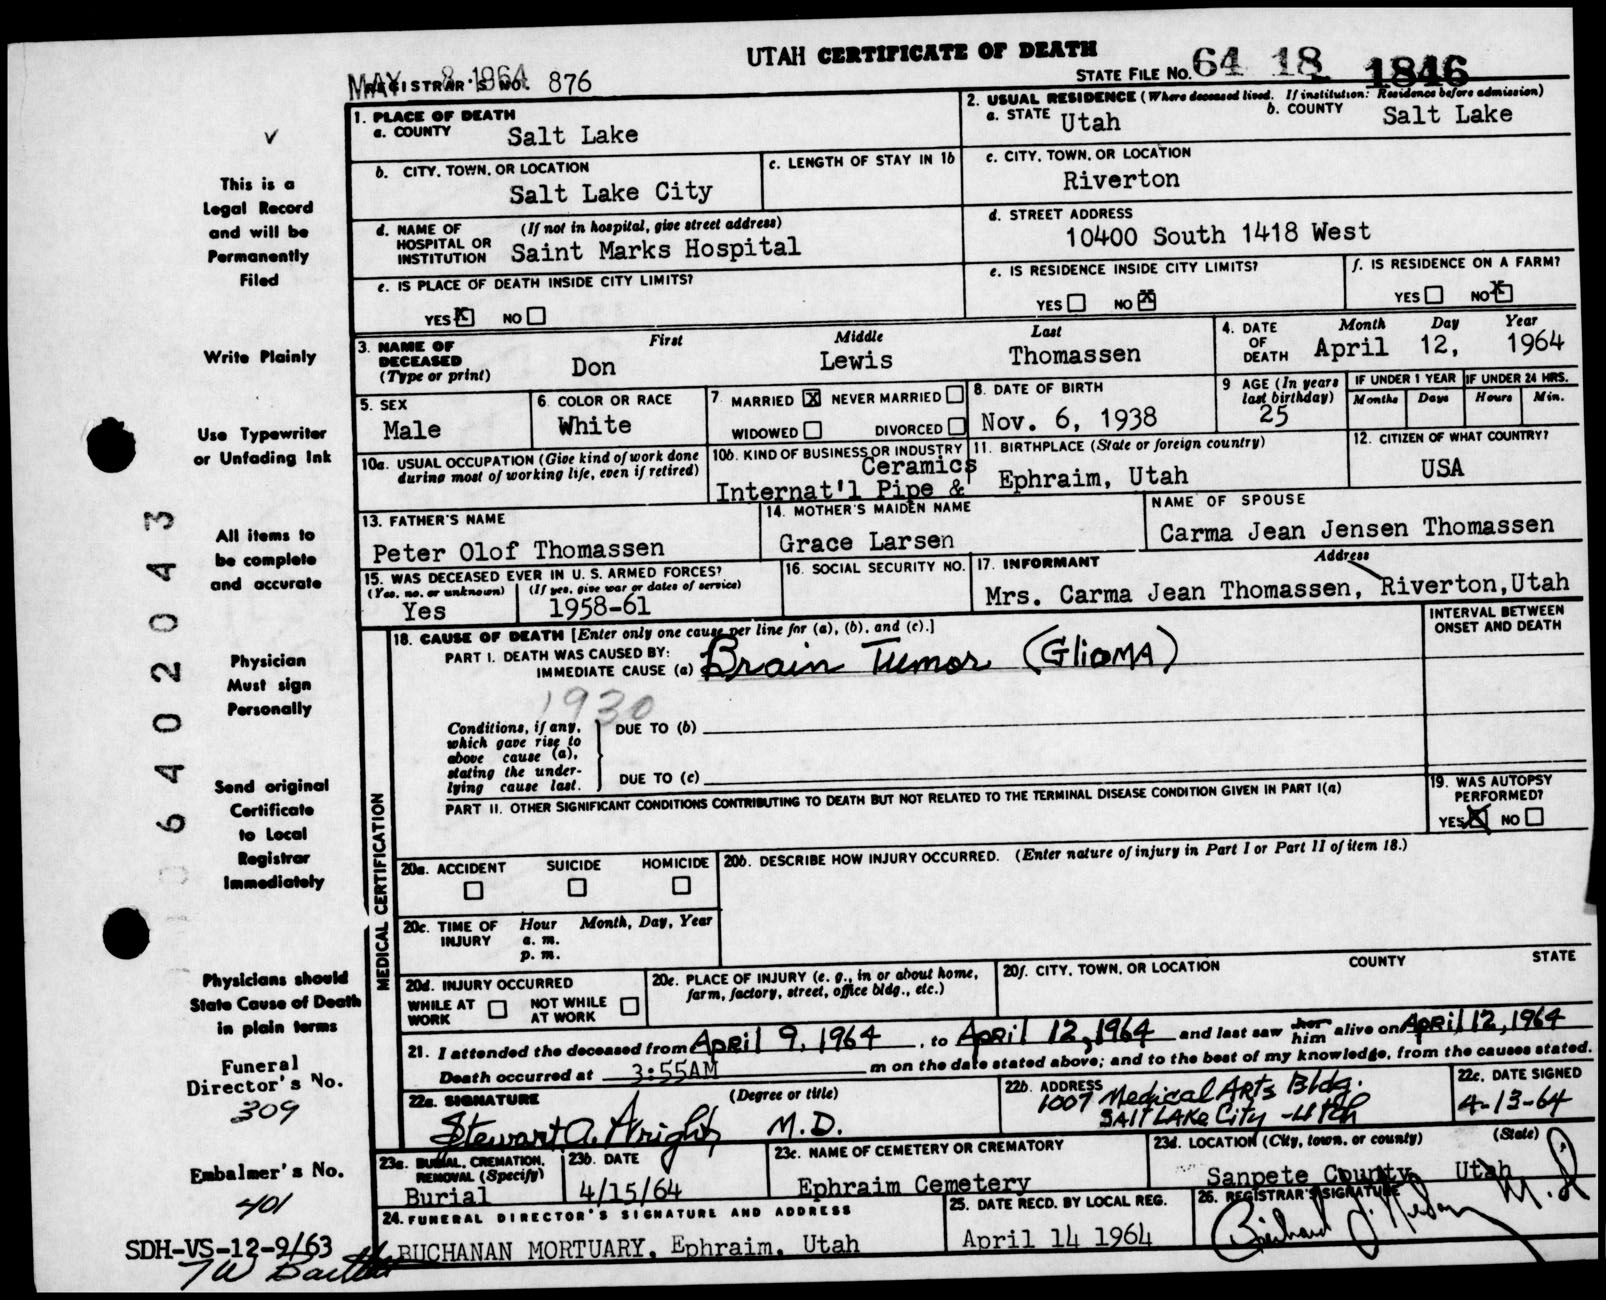 UTAH CERTIFICATE OF DEATH
MAY 8 1964 REGISTRAR'S NO. 876
STATE FILE NO. 64 18 1846
1. PLACE OF DEATH
a. COUNTY Salt Lake
2. USUAL RESIDENCE (Where deceased lived. If institution: Residence before admission)
a. STATE Utah b. COUNTY Salt Lake
b. CITY, TOWN, OR LOCATION Salt Lake City
c. LENGTH OF STAY IN 1b
c. CITY, TOWN, OR LOCATION
Riverton
d. NAME OF HOSPITAL OR INSTITUTION (If not in hospital, give street address)
Saint Marks Hospital
d. STREET ADDRESS
10400 South 1418 West
e. IS PLACE OF DEATH INSIDE CITY LIMITS?
YES X NO
e. IS RESIDENCE INSIDE CITY LIMITS?
YES NO X
f. IS RESIDENCE ON A FARM?
YES NO X
3. NAME OF DECEASED (Type or print)
First Middle Last
Don Lewis Thomassen
4. DATE OF DEATH Month Day Year
April 12, 1964
5. SEX
Male
6. COLOR OR RACE
White
7. MARRIED X NEVER MARRIED
WIDOWED DIVORCED
8. DATE OF BIRTH
Nov. 6, 1938
9 AGE (In years last birthday)
25
IF UNDER 1 YEAR IF UNDER 24 HRS.
Months Days Hours Min.
10a. USUAL OCCUPATION (Give kind of work done during most of working life, even if retired)
10b. KIND OF BUSINESS OR INDUSTRY
Ceramics
Internat'l Pipe &
11. BIRTHPLACE (State or foreign country)
Ephraim, Utah
12. CITIZEN OF WHAT COUNTRY?
USA
13. FATHER'S NAME
Peter Olof Thomassen
14. MOTHER'S MAIDEN NAME
Grace Larsen
NAME OF SPOUSE
Carma Jean Jensen Thomassen
15. WAS DECEASED EVER IN U. S. ARMED FORCES?
(Yes, no, or unknown) (If yes, give war or dates of service)
Yes 1958-61
16. SOCIAL SECURITY NO.
17. INFORMANT Address
Mrs. Carma Jean Thomassen, Riverton, Utah
18. CAUSE OF DEATH [Enter only one cause per line for (a), (b), and (c).]
INTERVAL BETWEEN ONSET AND DEATH
PART I. DEATH WAS CAUSED BY:
IMMEDIATE CAUSE (a) Brain Tumor (GLIOMA)
1930
Conditions, if any, which gave rise to above cause (a), stating the underlying cause last.
DUE TO (b)
DUE TO (c)
PART II. OTHER SIGNIFICANT CONDITIONS CONTRIBUTING TO DEATH BUT NOT RELATED TO THE TERMINAL DISEASE CONDITION GIVEN IN PART I(a)
19. WAS AUTOPSY PERFORMED?
YES X NO
MEDICAL CERTIFICATION
20a. ACCIDENT SUICIDE HOMICIDE
20b. DESCRIBE HOW INJURY OCCURRED. (Enter nature of injury in Part I or Part II of item 18.)
20c. TIME OF INJURY Hour Month, Day, Year
a. m.
p. m.
20d. INJURY OCCURRED
WHILE AT WORK NOT WHILE AT WORK
20e. PLACE OF INJURY (e. g., in or about home, farm, factory, street, office bldg., etc.)
20f. CITY, TOWN, OR LOCATION COUNTY STATE
21. I attended the deceased from April 9, 1964, to April 12, 1964 and last saw her him alive on April 12, 1964
Death occurred at 3:55AM m on the date stated above; and to the best of my knowledge, from the causes stated.
22a. SIGNATURE (Degree or title)
Stewart A. Wright M.D.
22b. ADDRESS 1007 Medical Arts Bldg.
Salt Lake City - Utah
22c. DATE SIGNED
4-13-64
23a. BURIAL, CREMATION, REMOVAL (Specify)
Burial
23b. DATE
4/15/64
23c. NAME OF CEMETERY OR CREMATORY
Ephraim Cemetery
23d. LOCATION (City, town, or county) (State)
Sanpete County, Utah
24. FUNERAL DIRECTOR'S SIGNATURE AND ADDRESS
BUCHANAN MORTUARY, Ephraim, Utah
25. DATE RECD. BY LOCAL REG.
April 14 1964
26. REGISTRAR'S SIGNATURE
M.D.
This is a
Legal Record
and will be
Permanently
Filed
Write Plainly
Use Typewriter
or Unfading Ink
All items to
be complete
and accurate
Physician
Must sign
Personally
Send original
Certificate
to Local
Registrar
Immediately
Physicians should
State Cause of Death
in plain terms
Funeral
Director's No.
309
Embalmer's No.
401
SDH-VS-12-9/63
6402043